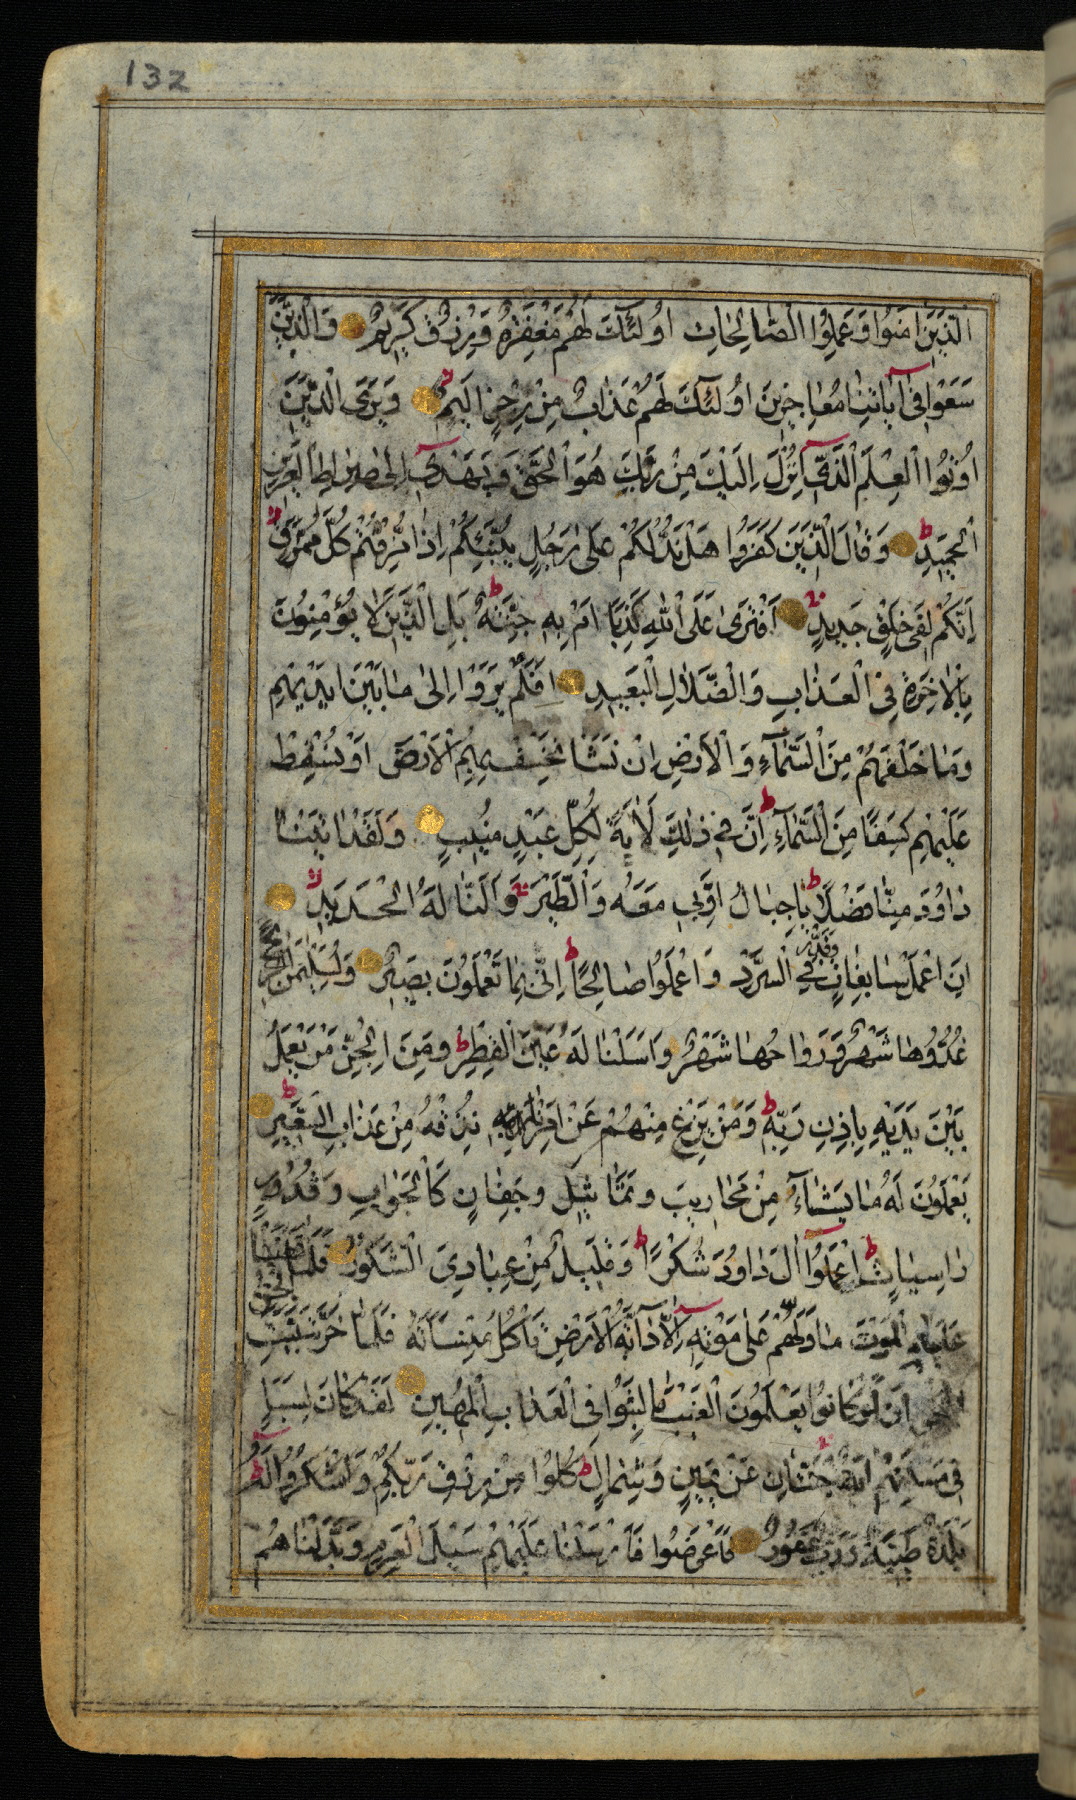 132
الَّذِينَ اٰمَنُوا وَعَمِلُوا الصَّالِحَاتِ اُولٰئِكَ لَهُمْ مَغْفِرَةٌ وَرِزْقٌ كَرِيمٌ وَالَّذِينَ
سَعَوْا فِى آيَاتِنَا مُعَاجِزِينَ اُولٰئِكَ لَهُمْ عَذَابٌ مِنْ رِجْزٍ اَلِيمٌ وَيَرَى الَّذِينَ
اُوتُوا الْعِلْمَ الَّذِى اُنْزِلَ اِلَيْكَ مِنْ رَبِّكَ هُوَ الْحَقَّ وَيَهْدِى اِلٰى صِرَاطِ الْعَزِيزِ
الْحَمِيدِ وَقَالَ الَّذِينَ كَفَرُوا هَلْ نَدُلُّكُمْ عَلٰى رَجُلٍ يُنَبِّئُكُمْ اِذَا مُزِّقْتُمْ كُلَّ مُمَزَّقٍ
اِنَّكُمْ لَفِى خَلْقٍ جَدِيدٍ اَفْتَرٰى عَلَى اللّٰهِ كَذِبًا اَمْ بِهِ جِنَّةٌ بَلِ الَّذِينَ لَا يُؤْمِنُونَ
بِالْاٰخِرَةِ فِى الْعَذَابِ وَالضَّلَالِ الْبَعِيدِ اَفَلَمْ يَرَوْا اِلٰى مَا بَيْنَ اَيْدِيهِمْ
وَمَا خَلْفَهُمْ مِنَ السَّمَاءِ وَالْاَرْضِ اِنْ نَشَأْ نَخْسِفْ بِهِمُ الْاَرْضَ اَوْ نُسْقِطْ
عَلَيْهِمْ كِسَفًا مِنَ السَّمَاءِ اِنَّ فِى ذٰلِكَ لَاٰيَةً لِكُلِّ عَبْدٍ مُنِيبٍ وَلَقَدْ اٰتَيْنَا
دَاوُدَ مِنَّا فَضْلًا يَا جِبَالُ اَوِّبِى مَعَهُ وَالطَّيْرَ وَاَلَنَّا لَهُ الْحَدِيدَ
اَنِ اعْمَلْ سَابِغَاتٍ وَقَدِّرْ فِى السَّرْدِ وَاعْمَلُوا صَالِحًا اِنِّى بِمَا تَعْمَلُونَ بَصِيرٌ وَلِسُلَيْمٰنَ الرِّيحَ
غُدُوُّهَا شَهْرٌ وَرَوَاحُهَا شَهْرٌ وَاَسَلْنَا لَهُ عَيْنَ الْقِطْرِ وَمِنَ الْجِنِّ مَنْ يَعْمَلُ
بَيْنَ يَدَيْهِ بِاِذْنِ رَبِّهِ وَمَنْ يَزِغْ مِنْهُمْ عَنْ اَمْرِنَا نُذِقْهُ مِنْ عَذَابِ السَّعِيرِ
يَعْمَلُونَ لَهُ مَا يَشَاءُ مِنْ مَحَارِيبَ وَتَمَاثِيلَ وَجِفَانٍ كَالْجَوَابِ وَقُدُورٍ
رَاسِيَاتٍ اعْمَلُوا اٰلَ دَاوُدَ شُكْرًا وَقَلِيلٌ مِنْ عِبَادِىَ الشَّكُورُ فَلَمَّا قَضَيْنَا
عَلَيْهِ الْمَوْتَ مَا دَلَّهُمْ عَلٰى مَوْتِهِ اِلَّا دَابَّةُ الْاَرْضِ تَأْكُلُ مِنْسَاَتَهُ فَلَمَّا خَرَّ تَبَيَّنَتِ
الْجِنُّ اَنْ لَوْ كَانُوا يَعْلَمُونَ الْغَيْبَ مَا لَبِثُوا فِى الْعَذَابِ الْمُهِينِ لَقَدْ كَانَ لِسَبَاٍ
فِى مَسْكَنِهِمْ اٰيَةٌ جَنَّتَانِ عَنْ يَمِينٍ وَشِمَالٍ كُلُوا مِنْ رِزْقِ رَبِّكُمْ وَاشْكُرُوا لَهُ
بَلْدَةٌ طَيِّبَةٌ وَرَبٌّ غَفُورٌ فَاَعْرَضُوا فَاَرْسَلْنَا عَلَيْهِمْ سَيْلَ الْعَرِمِ وَبَدَّلْنَاهُمْ